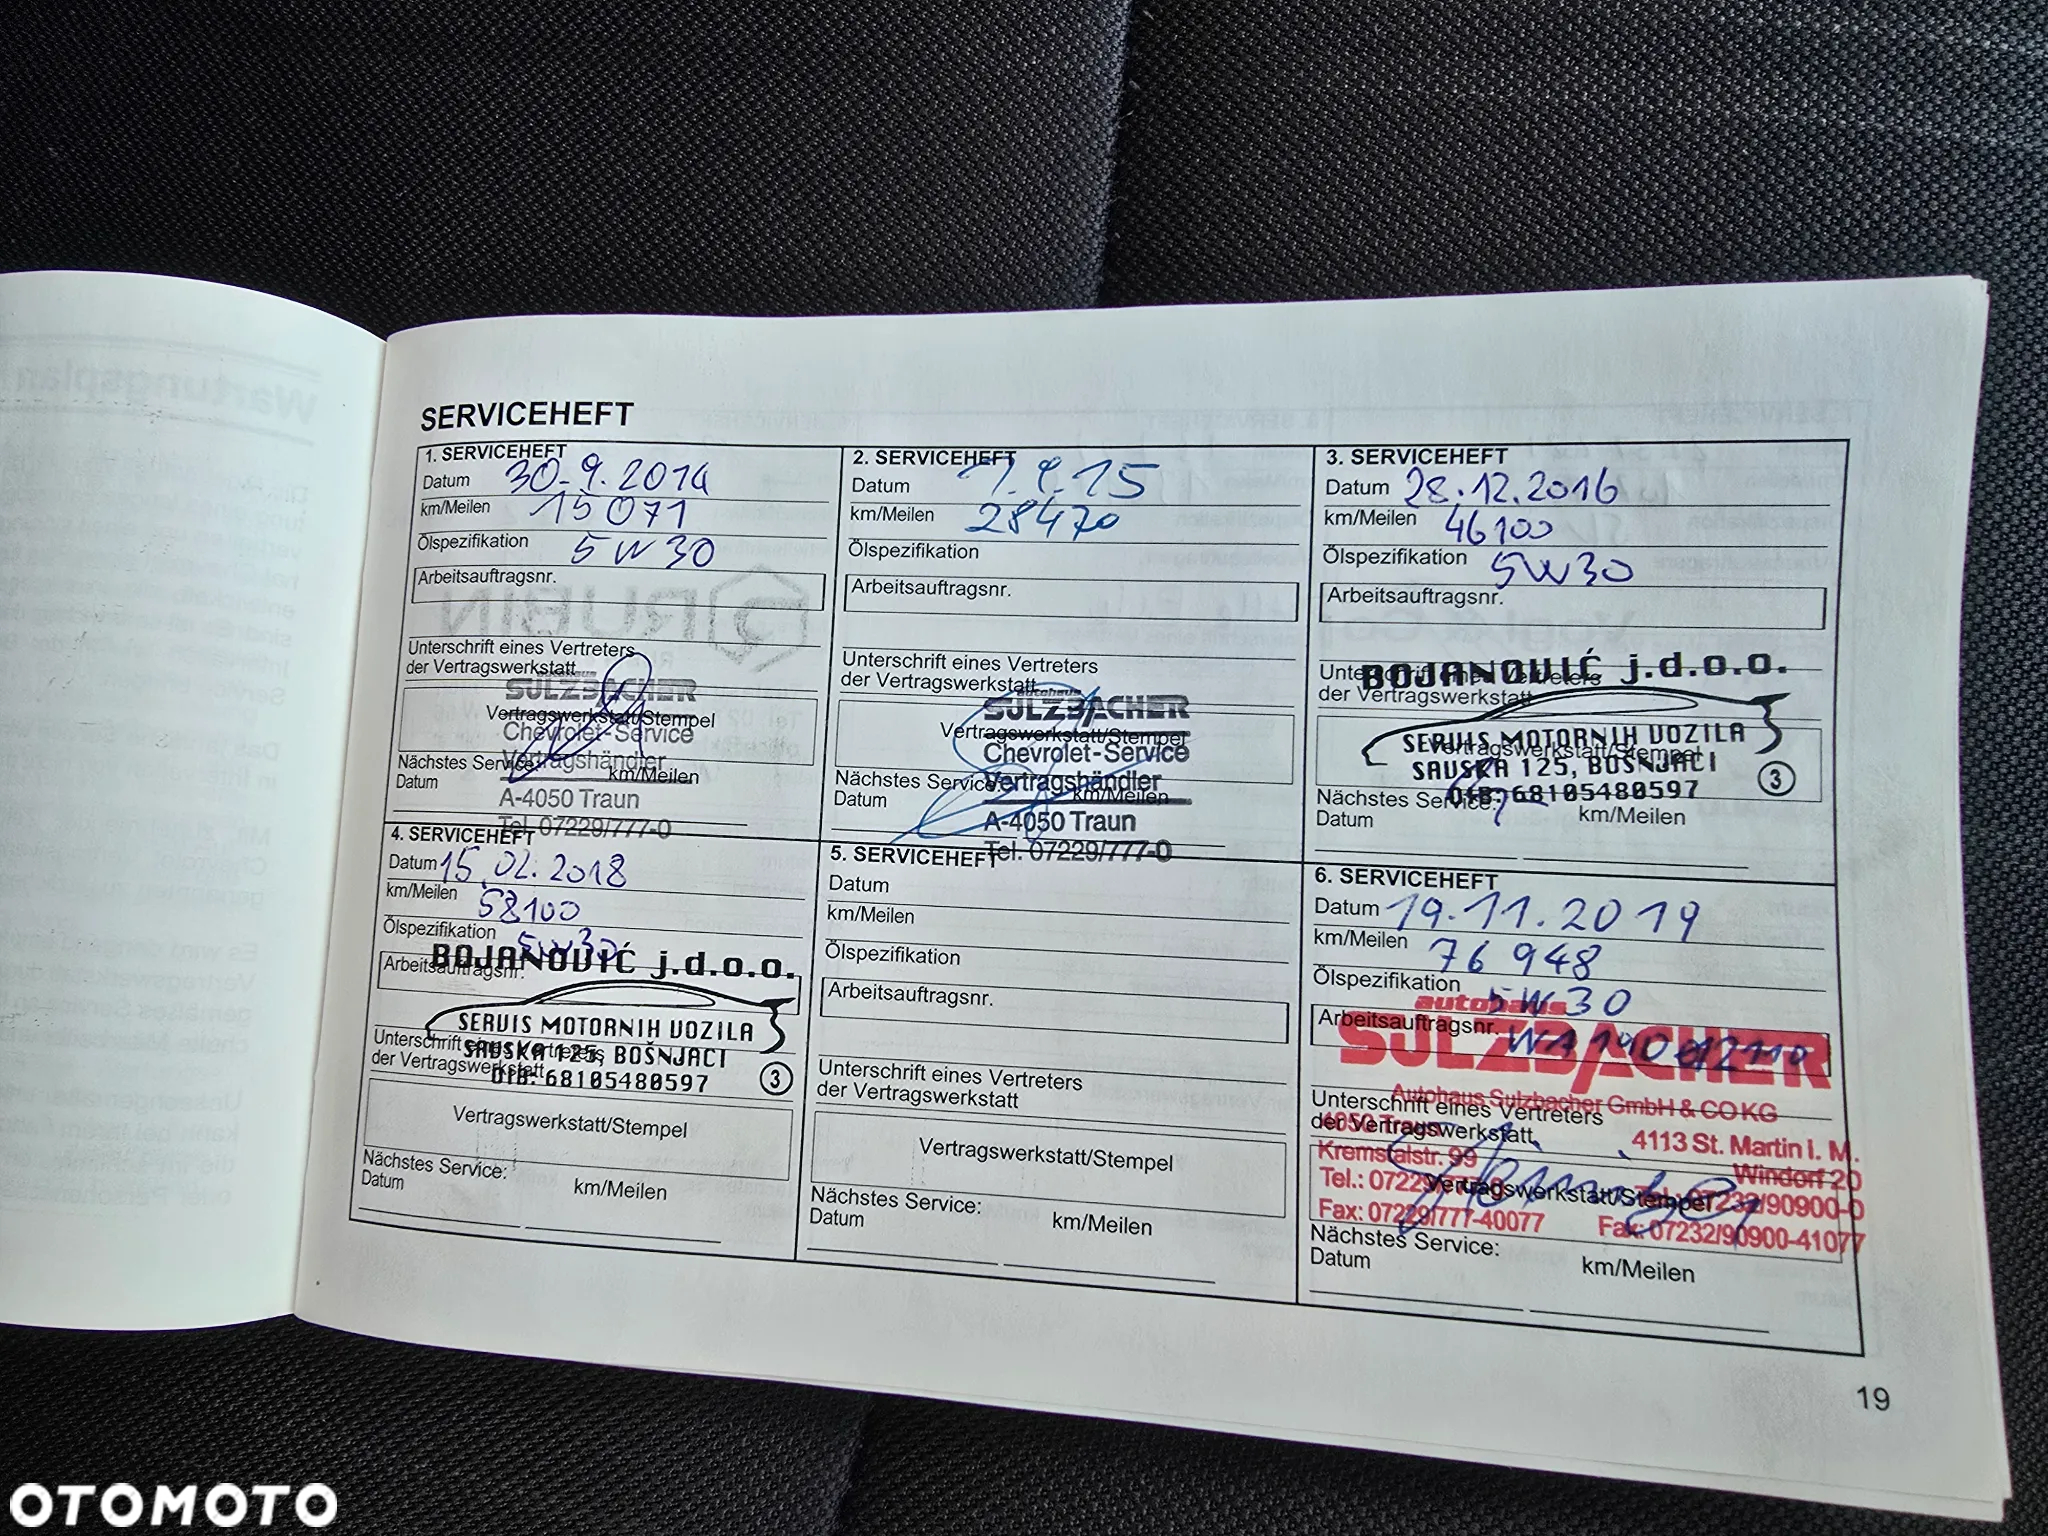 SERVICEHEFT
1. SERVICEHEFT
Datum 30.9.2014
km/Meilen 15071
Ölspezifikation 5W30
Arbeitsauftragsnr.
Unterschrift eines Vertreters
der Vertragswerkstatt
SULZBACHER
Vertragswerkstatt/Stempel
Chevrolet-Service
Vertragshändler
Nächstes Service:
Datum km/Meilen
A-4050 Traun
Tel. 07229/777-0
2. SERVICEHEFT
Datum 1.9.15
km/Meilen 28470
Ölspezifikation
Arbeitsauftragsnr.
Unterschrift eines Vertreters
der Vertragswerkstatt
autohaus
SULZBACHER
Vertragswerkstatt/Stempel
Chevrolet-Service
Nächstes Service:
Vertragshändler
Datum km/Meilen
A-4050 Traun
Tel. 07229/777-0
3. SERVICEHEFT
Datum 28.12.2016
km/Meilen 46100
Ölspezifikation 5W30
Arbeitsauftragsnr.
Unterschrift eines Vertreters
der Vertragswerkstatt
BOJANOVIĆ j.d.o.o.
SERVIS MOTORNIH VOZILA
Vertragswerkstatt/Stempel
SAVSKA 125, BOŠNJACI
OIB: 68105480597 3
Nächstes Service:
Datum km/Meilen
4. SERVICEHEFT
Datum 15.02.2018
km/Meilen 58100
Ölspezifikation 5W30
BOJANOVIĆ j.d.o.o.
Arbeitsauftragsnr.
SERVIS MOTORNIH VOZILA
Unterschrift eines Vertreters
SAVSKA 125, BOŠNJACI
der Vertragswerkstatt
OIB: 68105480597 3
Vertragswerkstatt/Stempel
Nächstes Service:
Datum km/Meilen
5. SERVICEHEFT
Datum
km/Meilen
Ölspezifikation
Arbeitsauftragsnr.
Unterschrift eines Vertreters
der Vertragswerkstatt
Vertragswerkstatt/Stempel
Nächstes Service:
Datum km/Meilen
6. SERVICEHEFT
Datum 19.11.2019
km/Meilen 76948
Ölspezifikation 5W30
autohaus
Arbeitsauftragsnr.
SULZBACHER
Autohaus Sulzbacher GmbH & CO KG
Unterschrift eines Vertreters
der Vertragswerkstatt
4050 Traun 4113 St. Martin i. M.
Kremstalstr. 99 Windorf 20
Vertragswerkstatt/Stempel
Tel.: 07232/90900-0
Fax: 07229/777-40077 Fax: 07232/90900-41077
Nächstes Service:
Datum km/Meilen
19
OTOMOTO